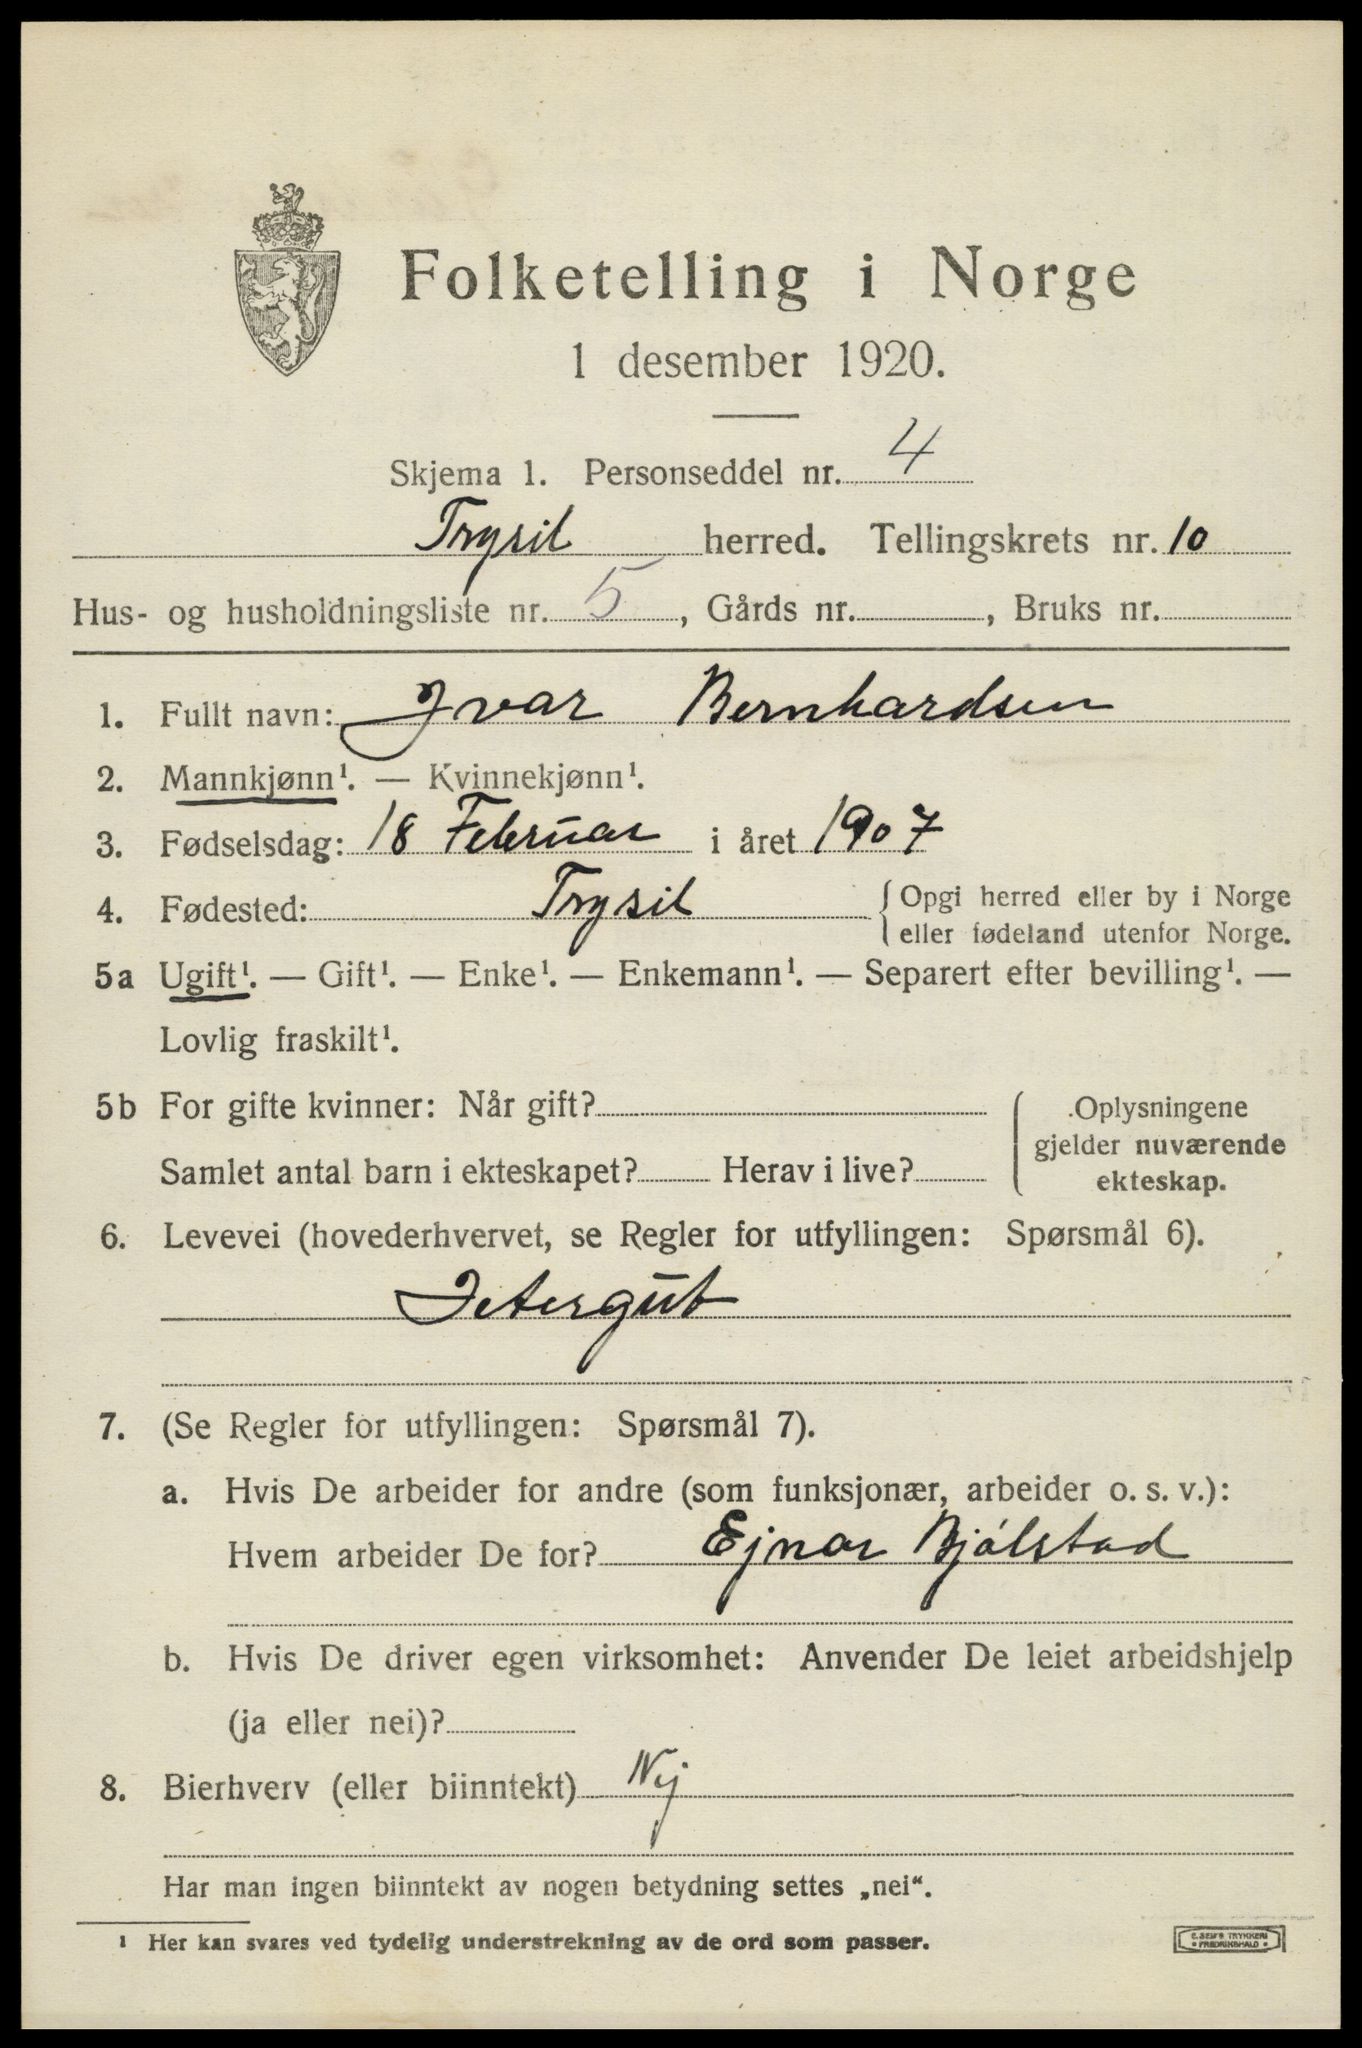 Folketelling i Norge
1 desember 1920.
Skjema 1. Personseddel nr. 4
Trysil herred. Tellingskrets nr. 10
Hus- og husholdningsliste nr. 5, Gårds nr. , Bruks nr.
1. Fullt navn: Ivar Bernhardsen
2. Mannkjønn¹. — Kvinnekjønn¹.
3. Fødselsdag: 18 Februar i året 1907
4. Fødested: Trysil { Opgi herred eller by i Norge
eller fødeland utenfor Norge.
5a Ugift¹. — Gift¹. — Enke¹. — Enkemann¹. — Separert efter bevilling¹. —
Lovlig fraskilt¹.
5b For gifte kvinner: Når gift?
Samlet antal barn i ekteskapet? Herav i live?
Oplysningene
gjelder nuværende
ekteskap.
6. Levevei (hovederhvervet, se Regler for utfyllingen: Spørsmål 6).
Jetergut
7. (Se Regler for utfyllingen: Spørsmål 7).
a. Hvis De arbeider for andre (som funksjonær, arbeider o. s. v.):
Hvem arbeider De for? Ejnar Bjølstad
b. Hvis De driver egen virksomhet: Anvender De leiet arbeidshjelp
(ja eller nei)?
8. Bierhverv (eller biinntekt) Nej
Har man ingen biinntekt av nogen betydning settes „nei“.
¹ Her kan svares ved tydelig understrekning av de ord som passer.
E. SEM'S TRYKKERI
• FREDRIKSHALD •